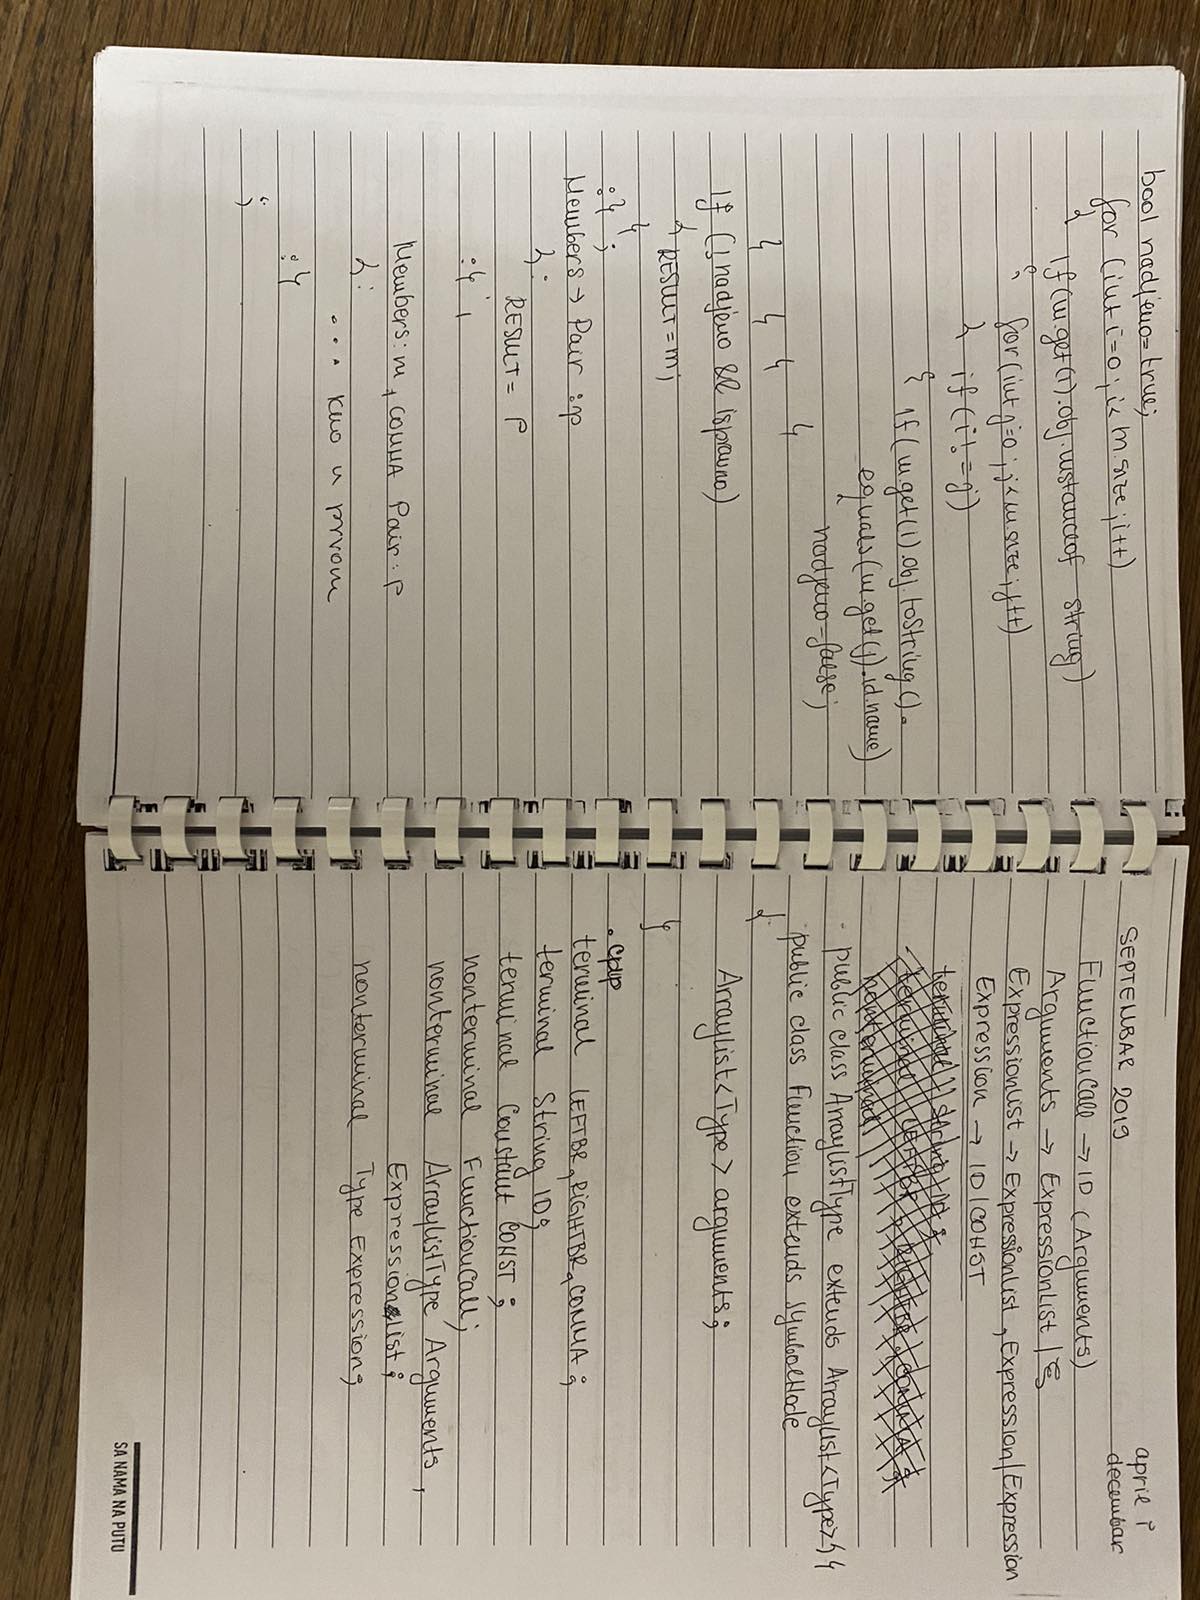 bool nadjeno=true;
for (int i=0; i< m.size; i++)
{ if(m.get(i).obj.instanceof string)
{ for(int j=0; j<m.size; j++)
{ if(i!=j)
{ if(m.get(i).obj.toString().
equals(m.get(j).id.name)
nadjeno=false;
}
}
}
}
if (!nadjeno && ispravno)
{ RESULT=m;
}
:};
Members → Pair :p
{:
RESULT= P
:} ; |
Members:m , COMMA Pair:P
{:
... као и prvom
:}
;
april i
decembar
SEPTEMBAR 2019
FunctionCall → ID (Arguments)
Arguments → ExpressionList | ε
ExpressionList → ExpressionList , Expression/Expression
Expression → ID/CONST
· public class ArraylistType extends Arraylist<Type>{}
· public class Function extends SymbolNode
{
Arraylist<Type> arguments;
}
. cup
terminal LEFTBR, RIGHTBR, COMMA;
terminal String ID;
terminal Constant CONST;
nonterminal FunctionCall;
nonterminal ArraylistType Arguments,
Expressionlist;
nonterminal Type Expression;
SA NAMA NA PUTU